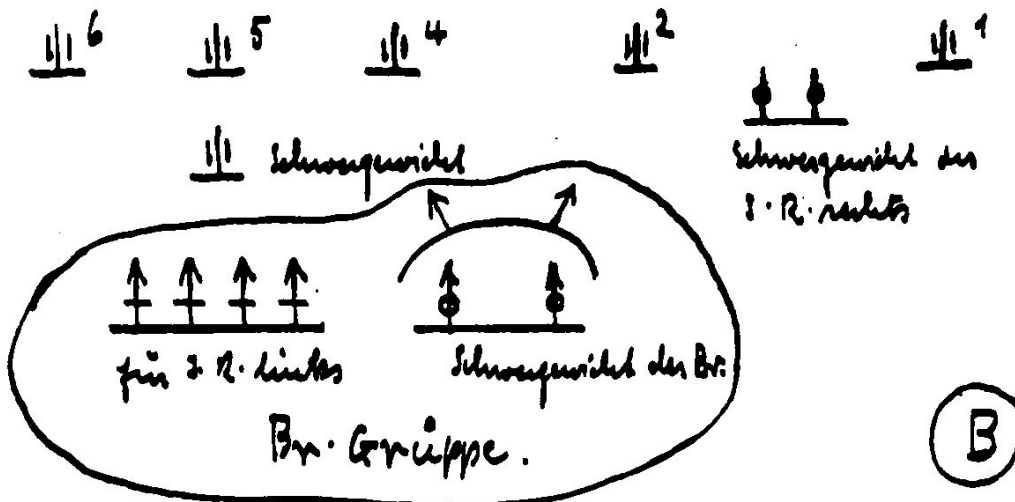 6 5 4 2 1
Schwergewicht
Schwergewicht des
J. R. rechts
für J. R. links
Schwergewicht der Br.
Br. Gruppe.
B